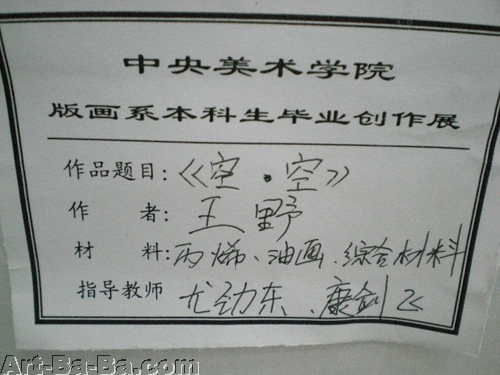 中央美术学院
版画系本科生毕业创作展
作品题目:《空·空》
作 者: 王野
材 料: 丙烯、油画、综合材料
指导教师 尤劲东、康剑飞
Art-Ba-Ba.com